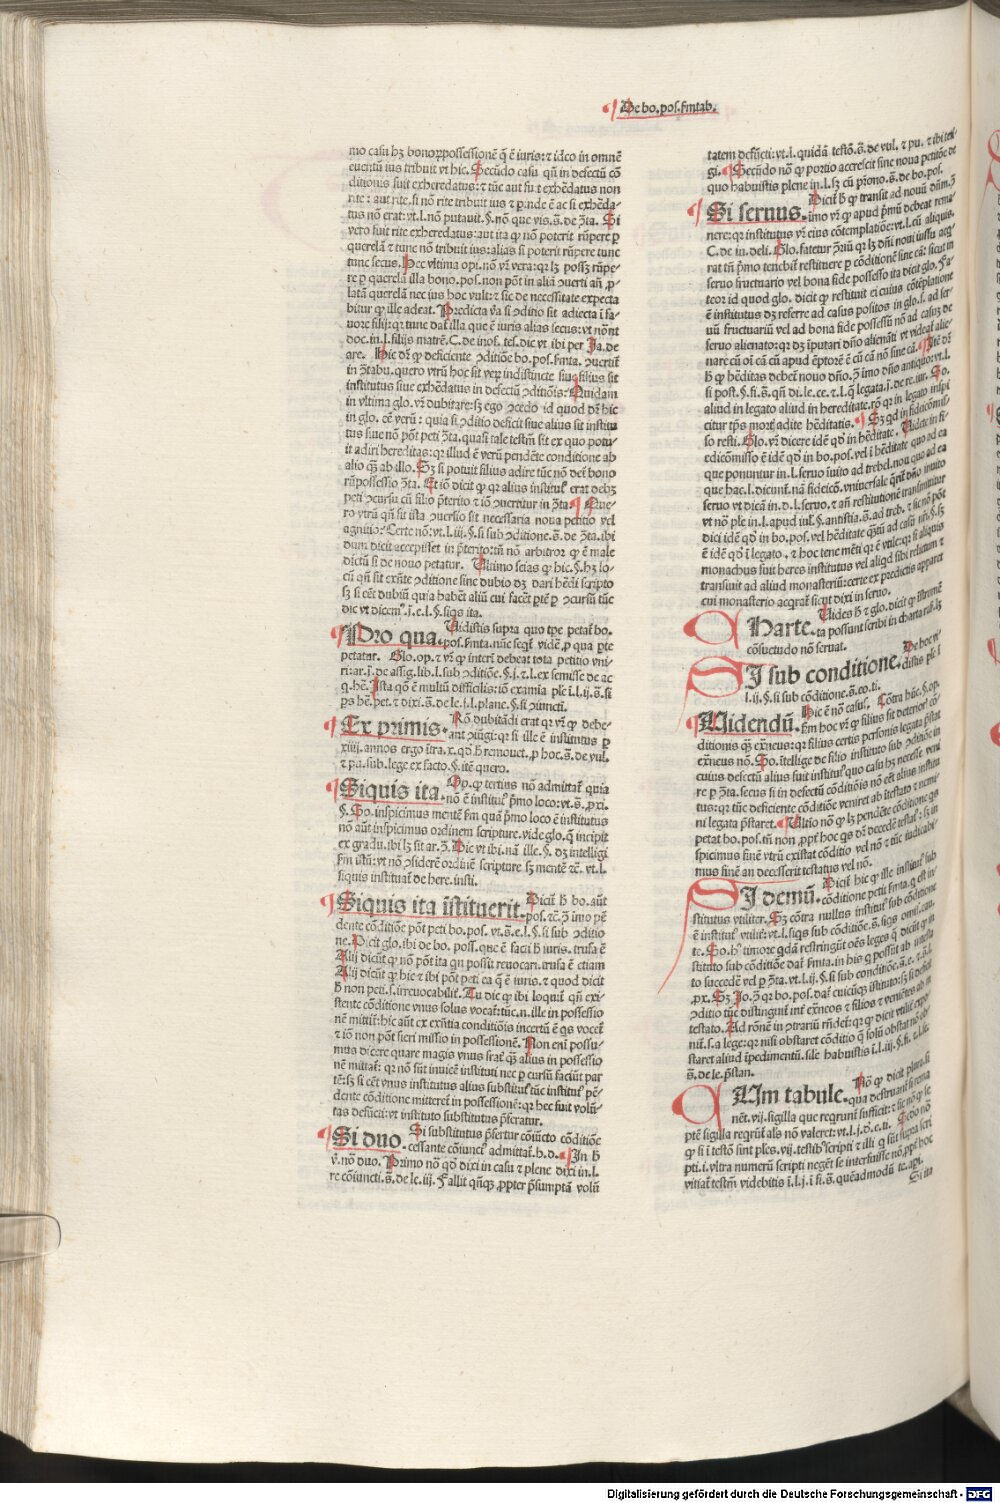 De bo. pos. fm tab.
mo casu hꝫ bonoꝝ possessionē q̄ ē iuris: ⁊ ideo in omnē
euentū ius tribuit vt hic. Secūdo casu qn̄ in defectū cō
ditionis fuit exheredatus: ⁊ tūc aut fuit exhēdatus non
rite: aut rite. si nō rite tribuit ius ⁊ ꝑinde ē ac si exhēda-
tus nō erat: vt.l. nō putauit. §. nō que vis. s̄. de ɔ̄ta. Si
vero fuit rite exheredatus: aut ita ꝙ nō poterit rūpere ꝑ
querelā ⁊ tunc nō tribuit ius: alias si poterit rūpere tunc
tunc secus. Hec vltima opi. nō vr̄ vera: qꝛ lꝫ possꝫ rūpe-
re ꝑ querelā illa bono. pos. non pōt in aliā ɔuerti añ ꝓ-
latā querelā nec ius hoc vult: ⁊ sic de necessitate expecta
bitur ꝙ ille adeat. Predicta v̄a si ɔditio sit adiecta i fa-
uore filij: qꝛ tunc dat̄ illa que ē iuris alias secus: vt nōnt
doc. in.l. filijs matrē. C. de inof. tes. dic vt ibi per Ja. de
are. Hic dr̄ ꝙ deficiente ɔditiōe bo. pos. fm̄ta. ɔuertit̄
in ɔ̄tabu. quero vtrū hoc sit verꝫ indistincte siue filius sit
institutus siue exhēdatus in defectū ɔditiōis: Quidam
in vltima glo. vr̄ dubitare: sꝫ ego ɔcedo id quod dr̄ hic
in glo. cē verū: quia si ɔditio deficit siue alius sit institu
tus siue nō pōt peti ɔ̄ta. quasi tale testm̄ sit ex quo potu-
it adiri hereditas: qꝛ illud ē verū pendēte conditione ab
alio qꝫ ab illo. Sꝫ si potuit filius adire tūc nō det̄ bono
rū possessio ɔ̄ta. Et iō dicit ꝙ qꝛ alius institut̄ erat debꝫ
peti ɔcursu cū filio p̄terito ⁊ iō ɔuertitur in ɔ̄ta. Que
ro vtrū qn̄ fit ista ɔuersio sit necessaria noua petitio vel
agnitio: Certe nō: vt.l. iij. §. si sub ɔditione. s̄. de ɔ̄ta. ibi
dum dicit accepisset in p̄terito: iū nō arbitror ꝙ ē male
dictū si de nouo petatur. Ultimo scias ꝙ hic. §. hꝫ lo-
cū qn̄ sit exn̄te ɔditione sine dubio dꝫ dari hēdi scripto
sꝫ si cēt dubiū quia habēt aliū cui facēt ꝑtē ꝑ ɔcursū tūc
dic vt dicem̄. j. e. l. §. siqs ita.
Pro qua. Uidistis supra quo tpe petat̄ bo.
pos. fm̄ta. nūc seqt̄ vidē ꝑ qua ꝑte
petatur. Glo. op. ⁊ vr̄ ꝙ interī debeat tota petitio vni-
ri: ar. j. de assig. lib. l. sub ɔditiōe. §. j. ⁊. l. ex semisse de ac
q. hē. Ista qō ē multū difficilis: iō examia ple i. l. ij. s̄. si
ps hē. pet. ⁊ dixi. s̄. de le. j. l. plane. §. si ɔiuncti.
Ex primis. Nō dubitādi erat qꝛ vr̄ ꝙ debe-
ant ɔiūgi: qꝛ si ille ē institutus ꝑ
xiiij. annos ergo it̄ra. x. qd h̄ remouet. ꝓ hoc. s̄. de vul.
⁊ pu. sub. lege ex facto. §. itē quero.
Siquis ita. Op. ꝙ tertius nō admittat̄ quia
nō ē institut̄ p̄mo loco: vt. s̄. ꝓxi.
§. So. inspicimus mentē fm̄ quā p̄mo loco ē institutus
nō aūt inspicimus ordinem scripture. vide glo. q̄ incipit
ex gradu. ibi lꝫ sit ar. ɔ̄. Dic vt ibi. nā ille. §. dꝫ intelligi
fm̄ istū: vt nō ɔsiderē ordinē scripture sꝫ mentē ⁊c̄. vt. l.
siquis instituat̄ de here. insti.
Siquis ita īstituerit. Dicit h̄ bo. aūt
pos. ⁊c̄. ɔ̄ imo pē
dente cōditiōe pōt peti bo. pos. vt. s̄. e. l. §. si sub ɔditio
ne. Dicit glo. ibi de bo. poss. que ē facti h̄ iuris. trufa ē
Alij dicūt ꝙ nō pōt ita qn̄ possit reuocari. trufa ē etiam
Alij dicūt ꝙ hic ⁊ ibi pōt peti ea q̄ ē iuris. ⁊ quod dicit
h̄ non peti. s. irreuocabilit̄. Tu dic ꝙ ibi loquit̄ qn̄ exi-
stente cōditione vnus solus vocat̄: tūc. n. ille in possessio
nē mittit̄: hic aūt ex exn̄tia conditiōis incertū ē qs vocet̄
⁊ iō non pōt fieri missio in possessionē. Non enī possu-
mus dicere quare magis vnus frat̄ qꝫ alius in possessio
nē mittat̄: qꝛ nō sūt inuicē instituti nec ꝑ cursū faciūt par
tē: sꝫ si cēt vnus institutus alius substitut̄ tūc institut̄ pē-
dente cōditione mitteret̄ in possessionē: qꝛ hec fuit volū-
tas defūcti: vt instituto substitutus p̄feratur.
Si duo. Si substitutus p̄fertur cōiūcto cōditiōe
cessante cōiunct̄ admittat̄. h. d. In h̄
v̄. nō duo. Primo nō qd̄ dixi in casu ⁊ plene dixi in. l.
re cōiuncti. s̄. de le. iij. Fallit qn̄qꝫ ꝓpter p̄sumptā volū
tatem defūcti: vt. i. quidā testō. s̄. de vul. ⁊ pu. ⁊ ibi tēti-
gi. Secūdo nō ꝙ portio accrescit sine noua petitiōe de
quo habuistis plene in. l. sꝫ cū p̄rono. s̄. de bo. pos.
Si seruus. Dicit h̄ ꝙ transit ad nouū dn̄m. ɔ̄
imo vr̄ ꝙ apud p̄mū debeat rema
nere: qꝛ institutus vr̄ eius cōtemplatiōe: vt. l. cū aliquis.
C. de in. deli. Glo. fatetur ɔ̄riū qꝛ lꝫ dn̄i noui iussu acq-
rat tn̄ p̄mo tenebit̄ restituere ꝑ cōditionē sine cā: sicut in
seruo fructuario vel bona fide possesso ita dicit glo. Fa-
teor id quod glo. dicit ꝙ restituit ei cuius cōtēplatione
ē institutus dꝫ referre ad casus positos in glo. s. ad ser-
uū fructuariū vel ad bona fide possessū nō ad casuꝫ de
seruo alienato: qꝛ dꝫ īputari dn̄o alienāti vt videat̄ alie-
nare cū oī cā cū apud ēptorē ē cū cā nō sine cā. Itē dr̄
h̄ ꝙ hēditas debet̄ nouo dn̄o. ɔ̄ imo dn̄o antiquo: vt. l.
si post. §. fi. s̄. qn̄ di. le. ce. ⁊. l. q̄ legata. j. de re. iur. So.
aliud in legato aliud in hereditate. rō qꝛ in legato inspi
citur tps mort̄ adite hēditatis. Sꝫ qd in fideicōmis
so resti. Glo. vr̄ dicere idē qd̄ in hēditate. Uidete in fi-
deicōmisso ē idē qd̄ in bo. pos. vel i hēditate quo ad ea
que ponuntur in. l. seruo īuito ad trebel. nou quo ad ea
que hac. l. dicunt̄. nā fideicō. vniuersale q̄rit̄ dn̄o inuito
seruo vt dicā in. d. l. seruo. ⁊ añ restitutionē transmittitur
vt nō ple in. l. apud iul. §. antistia. s̄. ad treb. ⁊ sic nō pōt
dici idē qd̄ in bo. pos. vel hēditate qn̄tū ad casū nr̄m. §. sꝫ
ē idē qd̄ i legato. ⁊ hoc tene mēti qꝛ ē vtile: qꝛ si aliquis
monachus fuit heres institutus vel aliqd sibi relictum ⁊
transiuit ad aliud monasteriū: certe ex predictis apparet
cui monasterio acqrat̄ sicut dixi in seruo.
Charte. Uides h̄ ⁊ glo. dicit ꝙ īstrumē
ta possunt scribi in charta rasa. lꝫ
cōsuetudo nō seruat.
Si sub conditione. De hoc vi-
distis ple i
l. ij. §. si sub cōditione. s̄. eo. ti.
Uidendū. Hic ē nō casus. Cōtra hūc. §. op.
fm̄ hoc vr̄ ꝙ filius sit deterior̄ cō
ditionis qꝫ extn̄eus: qꝛ filius certis personis legata p̄stat
extn̄eus nō. So. īellige de filio instituto sub ɔditiōe in
cuius defectū alius fuit institut̄ quo casu hꝫ necesse veni
re ꝑ ɔ̄ta. secus si in defectū cōditiōis nō eēt alius institu
tus: qꝛ tūc deficiente cōditiōe veniret ab īstato ⁊ nemi-
ni legata p̄staret. Ultio nō ꝙ lꝫ pendēte cōditione qs
petat bo. pos. tn̄ non ꝓpt̄ hoc qs dr̄ decedē testat̄: sꝫ in
spicimus finē vtrū existat cōditio vel nō ⁊ tūc iudicabi-
mus finē an decesserit testatus vel nō.
Si demū. Dicit hic ꝙ ille institut̄ sub
conditione petit fm̄ta. q̄ est in-
stitutus vtiliter. Sꝫ cōtra nullus institut̄ sub cōditione
ē institut̄ vtilit̄: vt. l. siqs sub cōditiōe. s̄. siqs omi. cau.
te. So. h' timore qdā restringūt oēs leges q̄ dicūt ꝙ in
stituto sub cōditiōe dat̄ fm̄ta. in his q̄ possūt ab intesta
to succedē vel ꝑ ɔ̄ta. vt. l. ij. §. si sub conditiōe. s̄. e. ⁊. s̄. l.
ꝓx. Sꝫ Jo. ɔ̄ qꝛ bo. pos. dat̄ cuicūqꝫ īstituto: sꝫ si deficit
ɔditio tūc distinguit̄ int̄ extn̄eos ⁊ filios ⁊ veniētes ab in
testato. Ad rōnē in ɔ̄trariū rn̄det̄: qꝛ ꝙ dicit vtilit̄ expo
nit̄. s. a lege: qꝛ nisi obstaret cōditio q̄ solū obstat nō ob-
staret aliud īpedimentū. sile habuistis i. l. iij. §. fi. ⁊. l. se.
s̄. de le. p̄stan.
Cum tabule. Nō ꝙ dicit plura. si
qua destruant̄ si rema
nēt. vij. sigilla que reqrunt̄ sufficit: ⁊ sic nō ꝙ se
ptē sigilla reqrūt̄ als nō valeret: vt. l. j. C. e. u. Scdo nō
ꝙ si i testō sint ples. vij. testib̄ scripti ⁊ illi q̄ sūt supra scri
pti. i. vltra numerū scripti negēt se interfuisse nō ꝓpt̄ hoc
vitiat̄ testm̄ videbitis i. l. j. i fi. s̄. quēadmodū te. api.
Si ita
Digitalisierung gefördert durch die Deutsche Forschungsgemeinschaft - DFG